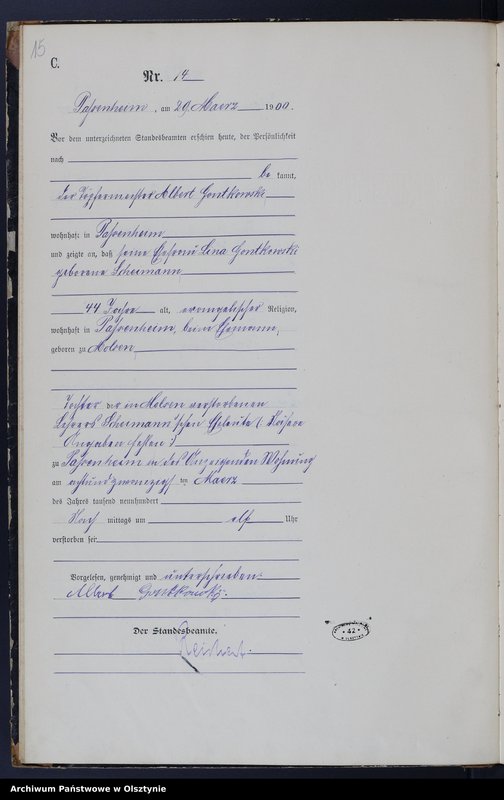 15
C.
Nr. 14
Passenheim, am 29. Maerz 1900.
Vor dem unterzeichneten Standesbeamten erschien heute, der Persönlichkeit
nach
be kannt,
der Töpfermeister Albert Gontkowski
wohnhaft in Passenheim
und zeigte an, daß seine Ehefrau Lina Gontkowski
geborene Scheimann
44 Jahre alt, evangelischer Religion,
wohnhaft in Passenheim, beim Ehemann,
geboren zu
Tochter der in verstorbenen
Lehrers Scheimann'schen Eheleute (: Nähere
Angaben fehlen :)
zu Passenheim in des Anzeigenden Wohnung
am achtundzwanzigsten Maerz
des Jahres tausend neunhundert
Nach mittags um elf Uhr
verstorben sei
Vorgelesen, genehmigt und unterschrieben:
Albert Gontkowski.
Der Standesbeamte.
42
Archiwum Państwowe w Olsztynie